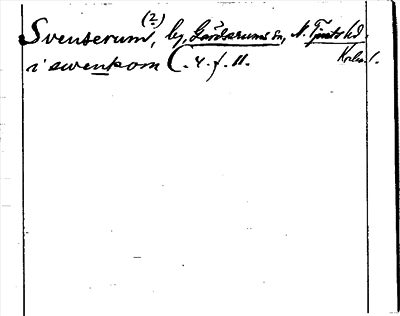 (2)
Svenserum, by, Gärdserums sn, N. Tjusts hd.
i swenkom C. 4. f. 11. Kalm. l.